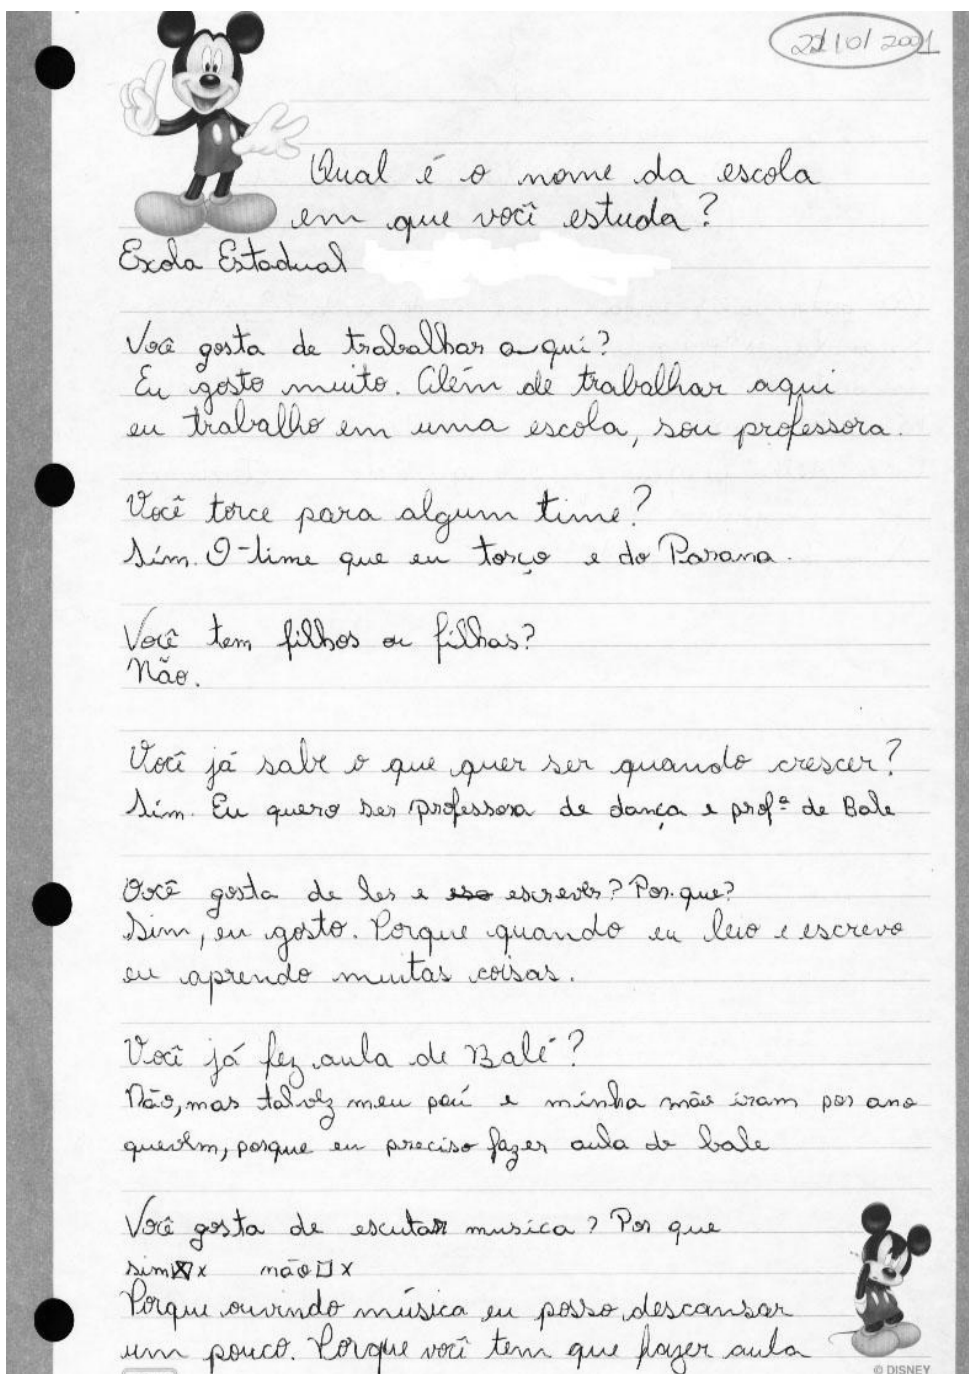 22/10/2001
Qual é o nome da escola
em que você estuda?
Escola Estadual
Você gosta de trabalhar a qui?
Eu gosto muito. Além de trabalhar aqui
eu trabalho em uma escola, sou professora.
Você torce para algum time?
Sim. O time que eu torço e do Parana.
Você tem filhos ou filhas?
Não.
Você já sabe o que quer ser quando crescer?
Sim. Eu quero ser professora de dança e profª de Bale
Você gosta de ler e eso escrever? Por que?
Sim, eu gosto. Porque quando eu leio e escrevo
eu aprendo muitas coisas.
Você já fez aula de Balé?
Não, mas talvez meu pai e minha mãe iram por ano
quevem, porque eu preciso fazer aula de bale
Você gosta de escutar musica? Por que
sim x não x
Porque ouvindo música eu posso descansar
um pouco. Porque você tem que fazer aula
© DISNEY